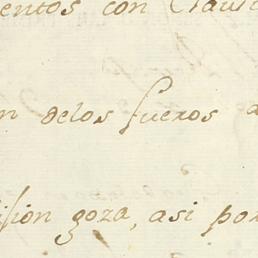 entos con Claus
n delos fueros a
ision goza, asi por